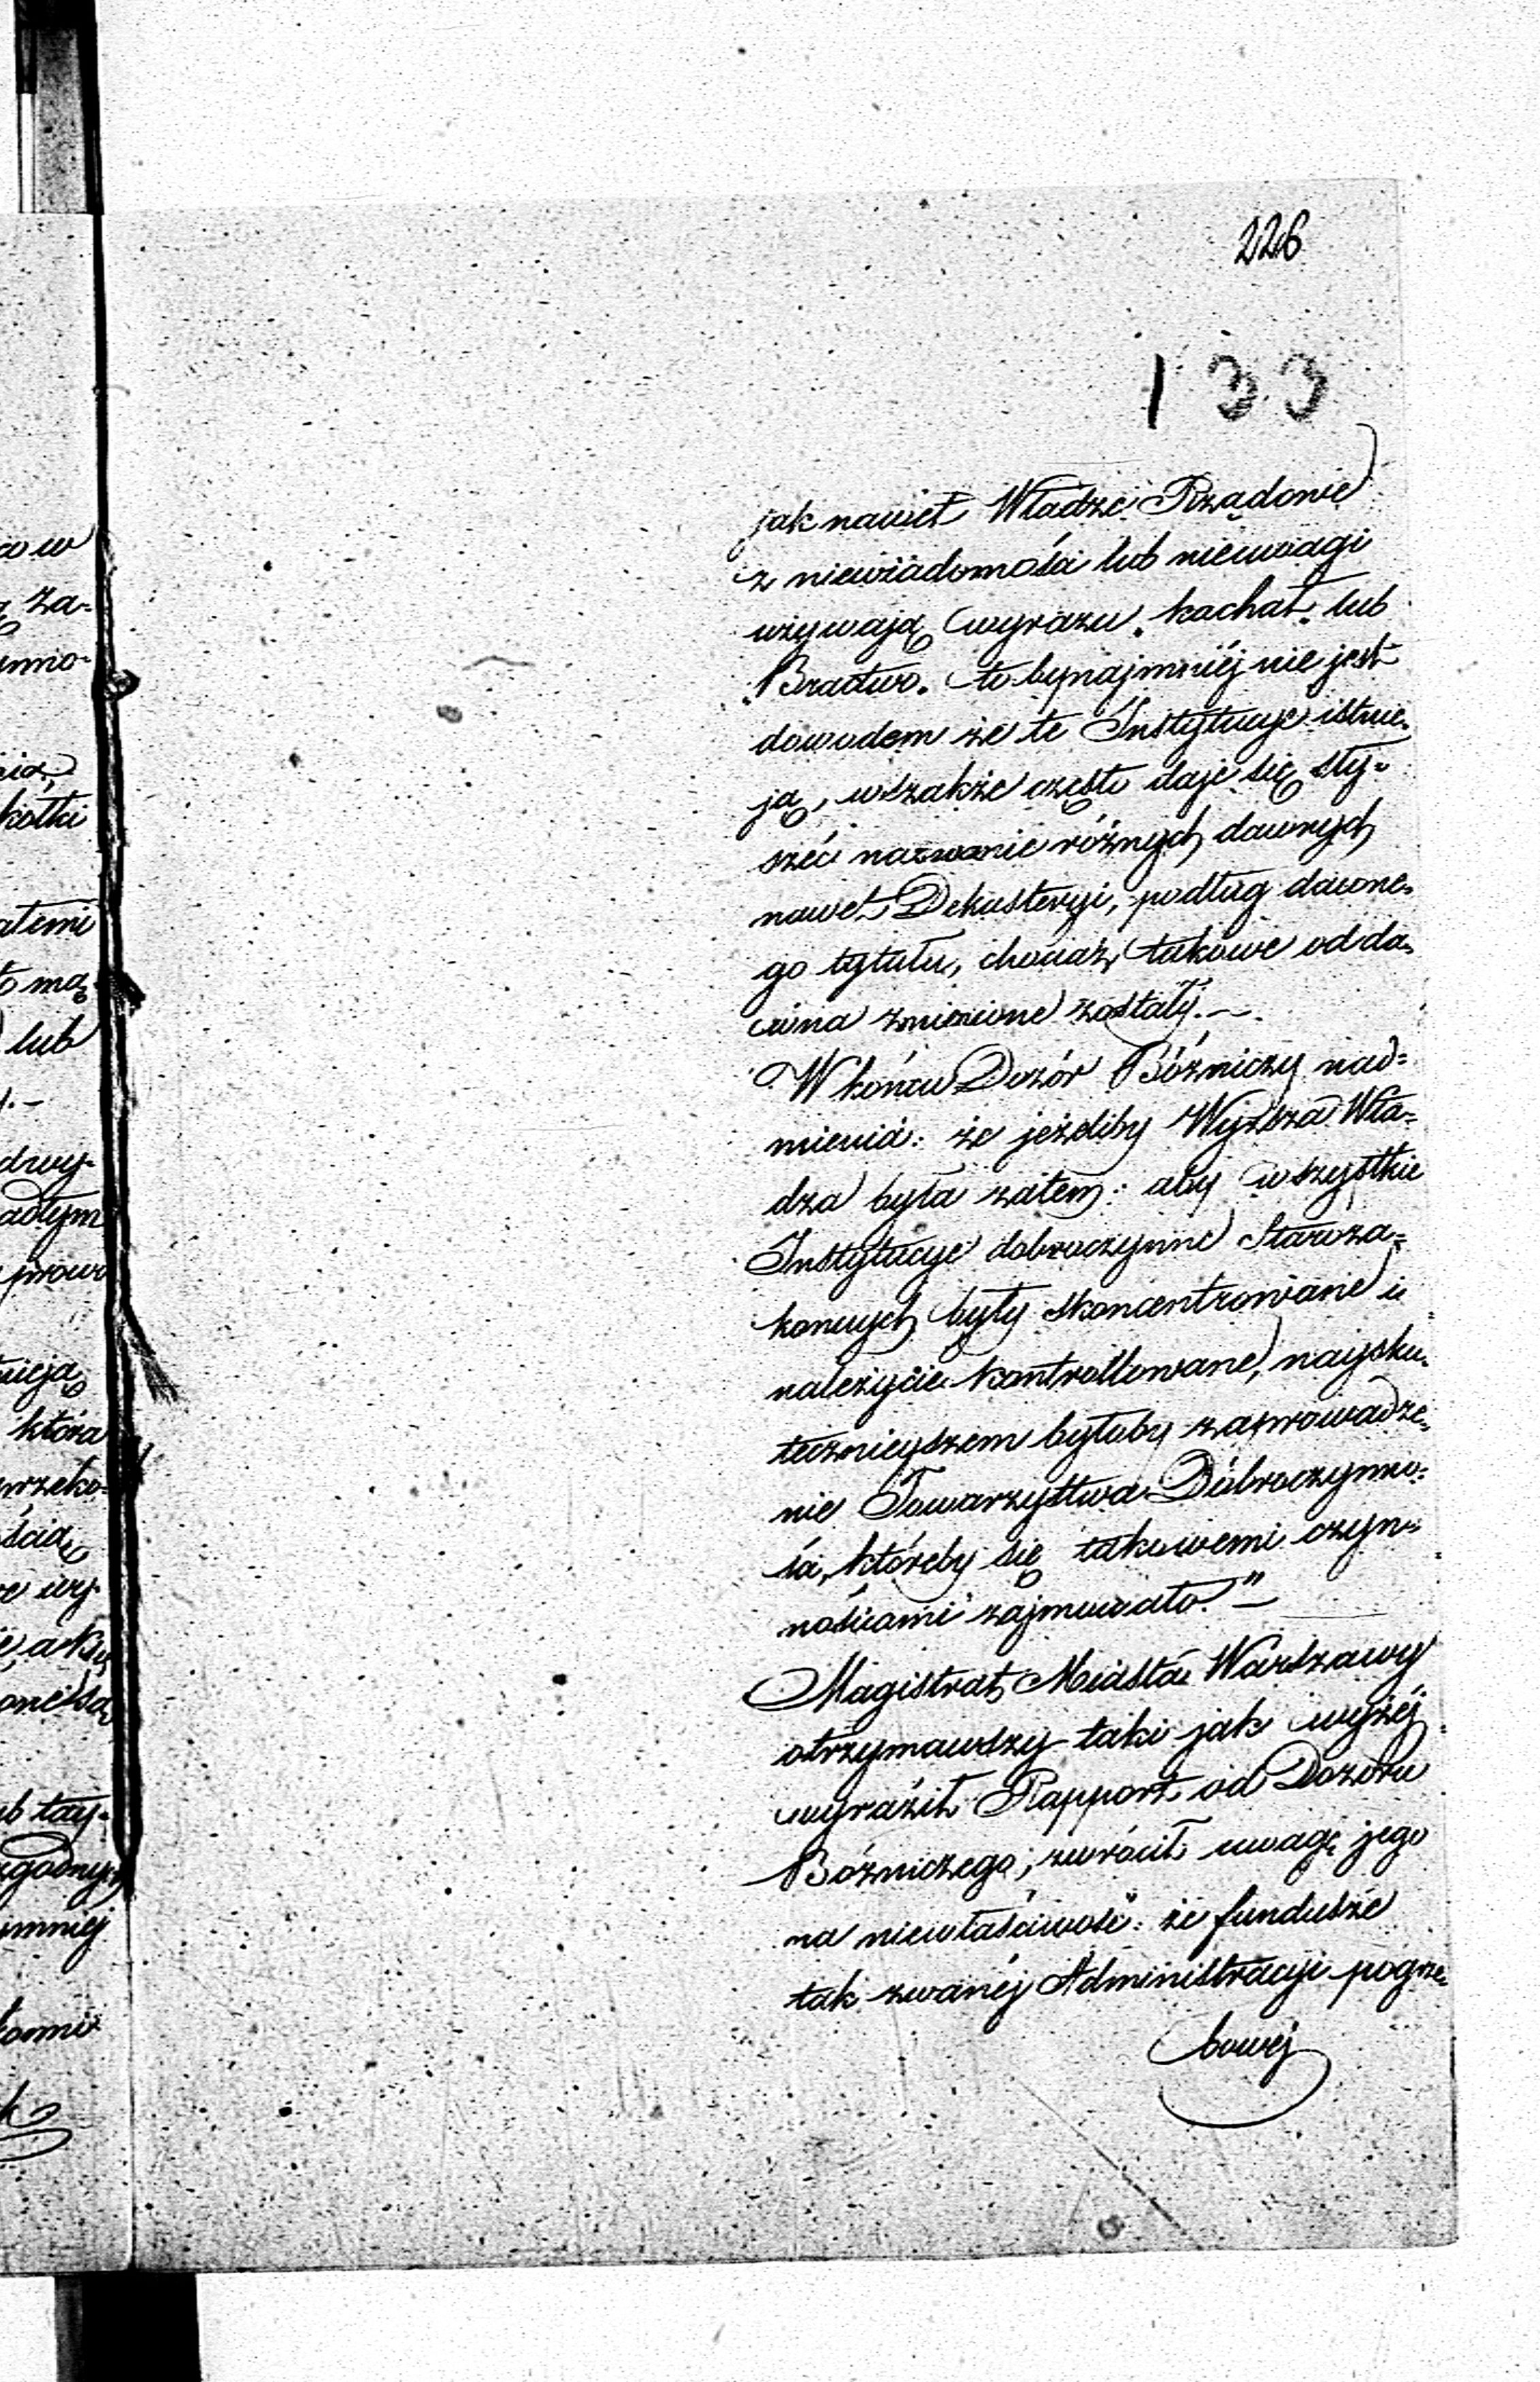 226
133
jak nawet Władze Rządowe
z niewiadomości lub nieuwagi
używają wyrazu „kachał„ lub
„Bractwo„ to bynajmniéj nie jest
dowodem że te Instytucye istnie„
ją, wszakże często daje się sły„
széć nazwanie różnych dawnych
nawet Dekasteryi, podług dawne„
go tytułu, chociaż takowe od da„
wna zmienione zostały.—.
W końcu Dozór Bóżniczy nad=
mienia: że jeżeliby Wyższa Wła=
dza była zatem: aby wszystkie
Instytucye dobroczynne Staroza=
konnych były skoncentrowane i
należycie kontrollowane, naysku„
tecznieyszem byłoby zaprowadze„
nie Towarzystwa Dobroczynno=
ści, któreby się takowemi czyn„
nościami zajmowało." —
Magistrat Miasta Warszawy
otrzymawszy taki jak wyżéj
wyraził Rapport od Dozoru
Bóżniczego; zwrócił uwagę jego
na niewłaściwość: że fundusze
tak zwanéj Administracyi pogrze„
bowéj
aw
za=
mno=
kółki
atemi
o mą
lub
dwy=
prawo
która
przeko=
ścią
b tay=
mniéj